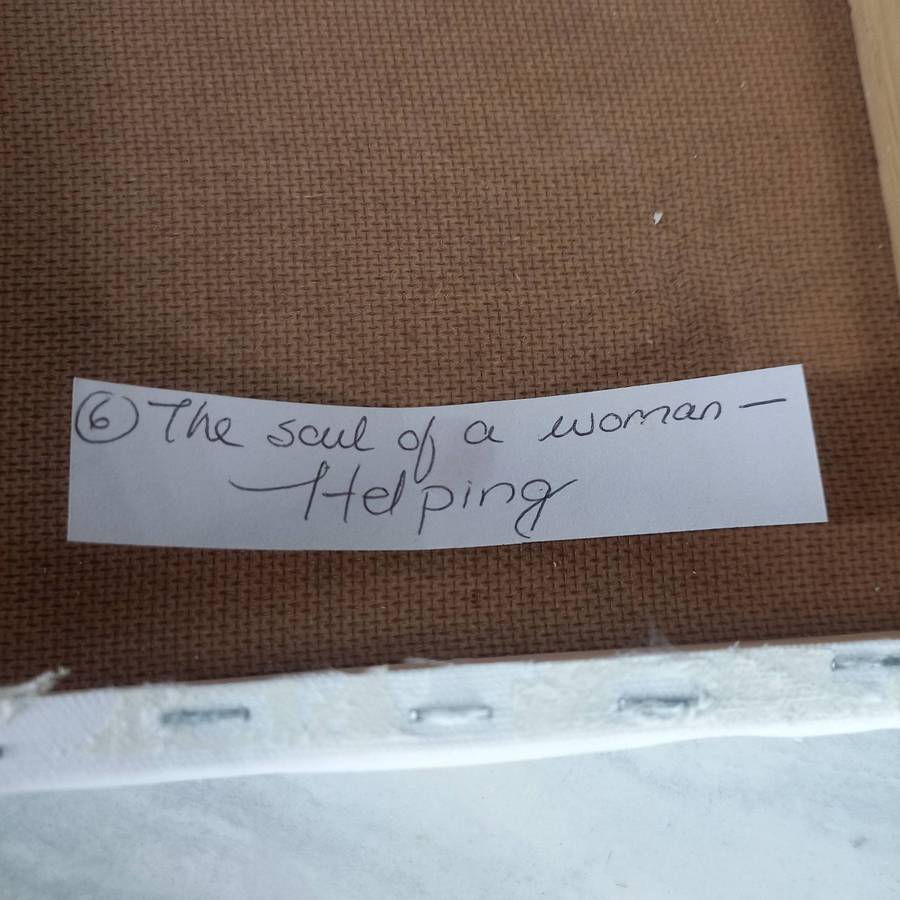 ⑥ The soul of a woman —
Helping